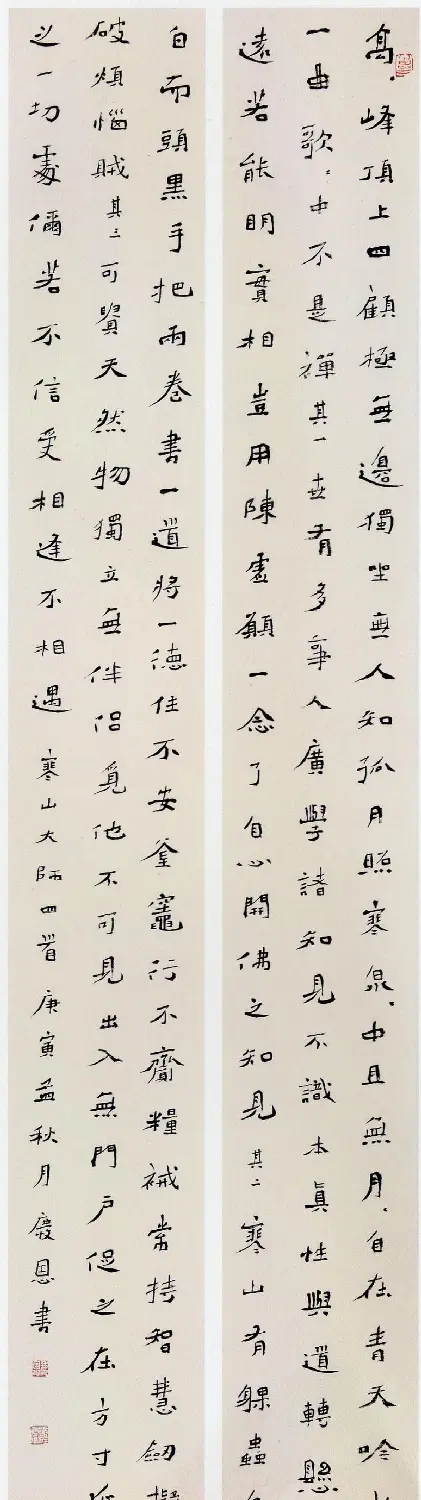 高、峰頂上四顧極無邊獨坐無人知孤月照寒泉、中且無月、自在青天吟
一曲歌:中不是禪其一世有多事人廣學諸知見不識本真性與道轉懸
遠若能明實相豈用陳虛願一念了自心開佛之知見其二寒山有躶蟲
白而頭黑手把兩卷書一道將一德住不安釜竈行不齎糧裓常持智慧劍
破煩惱賊其三可貴天然物獨立無伴侶覓他不可見出入無門戶促之在方寸
之一切處儞若不信受相逢不相遇 寒山大師四首庚寅孟秋月慶恩書